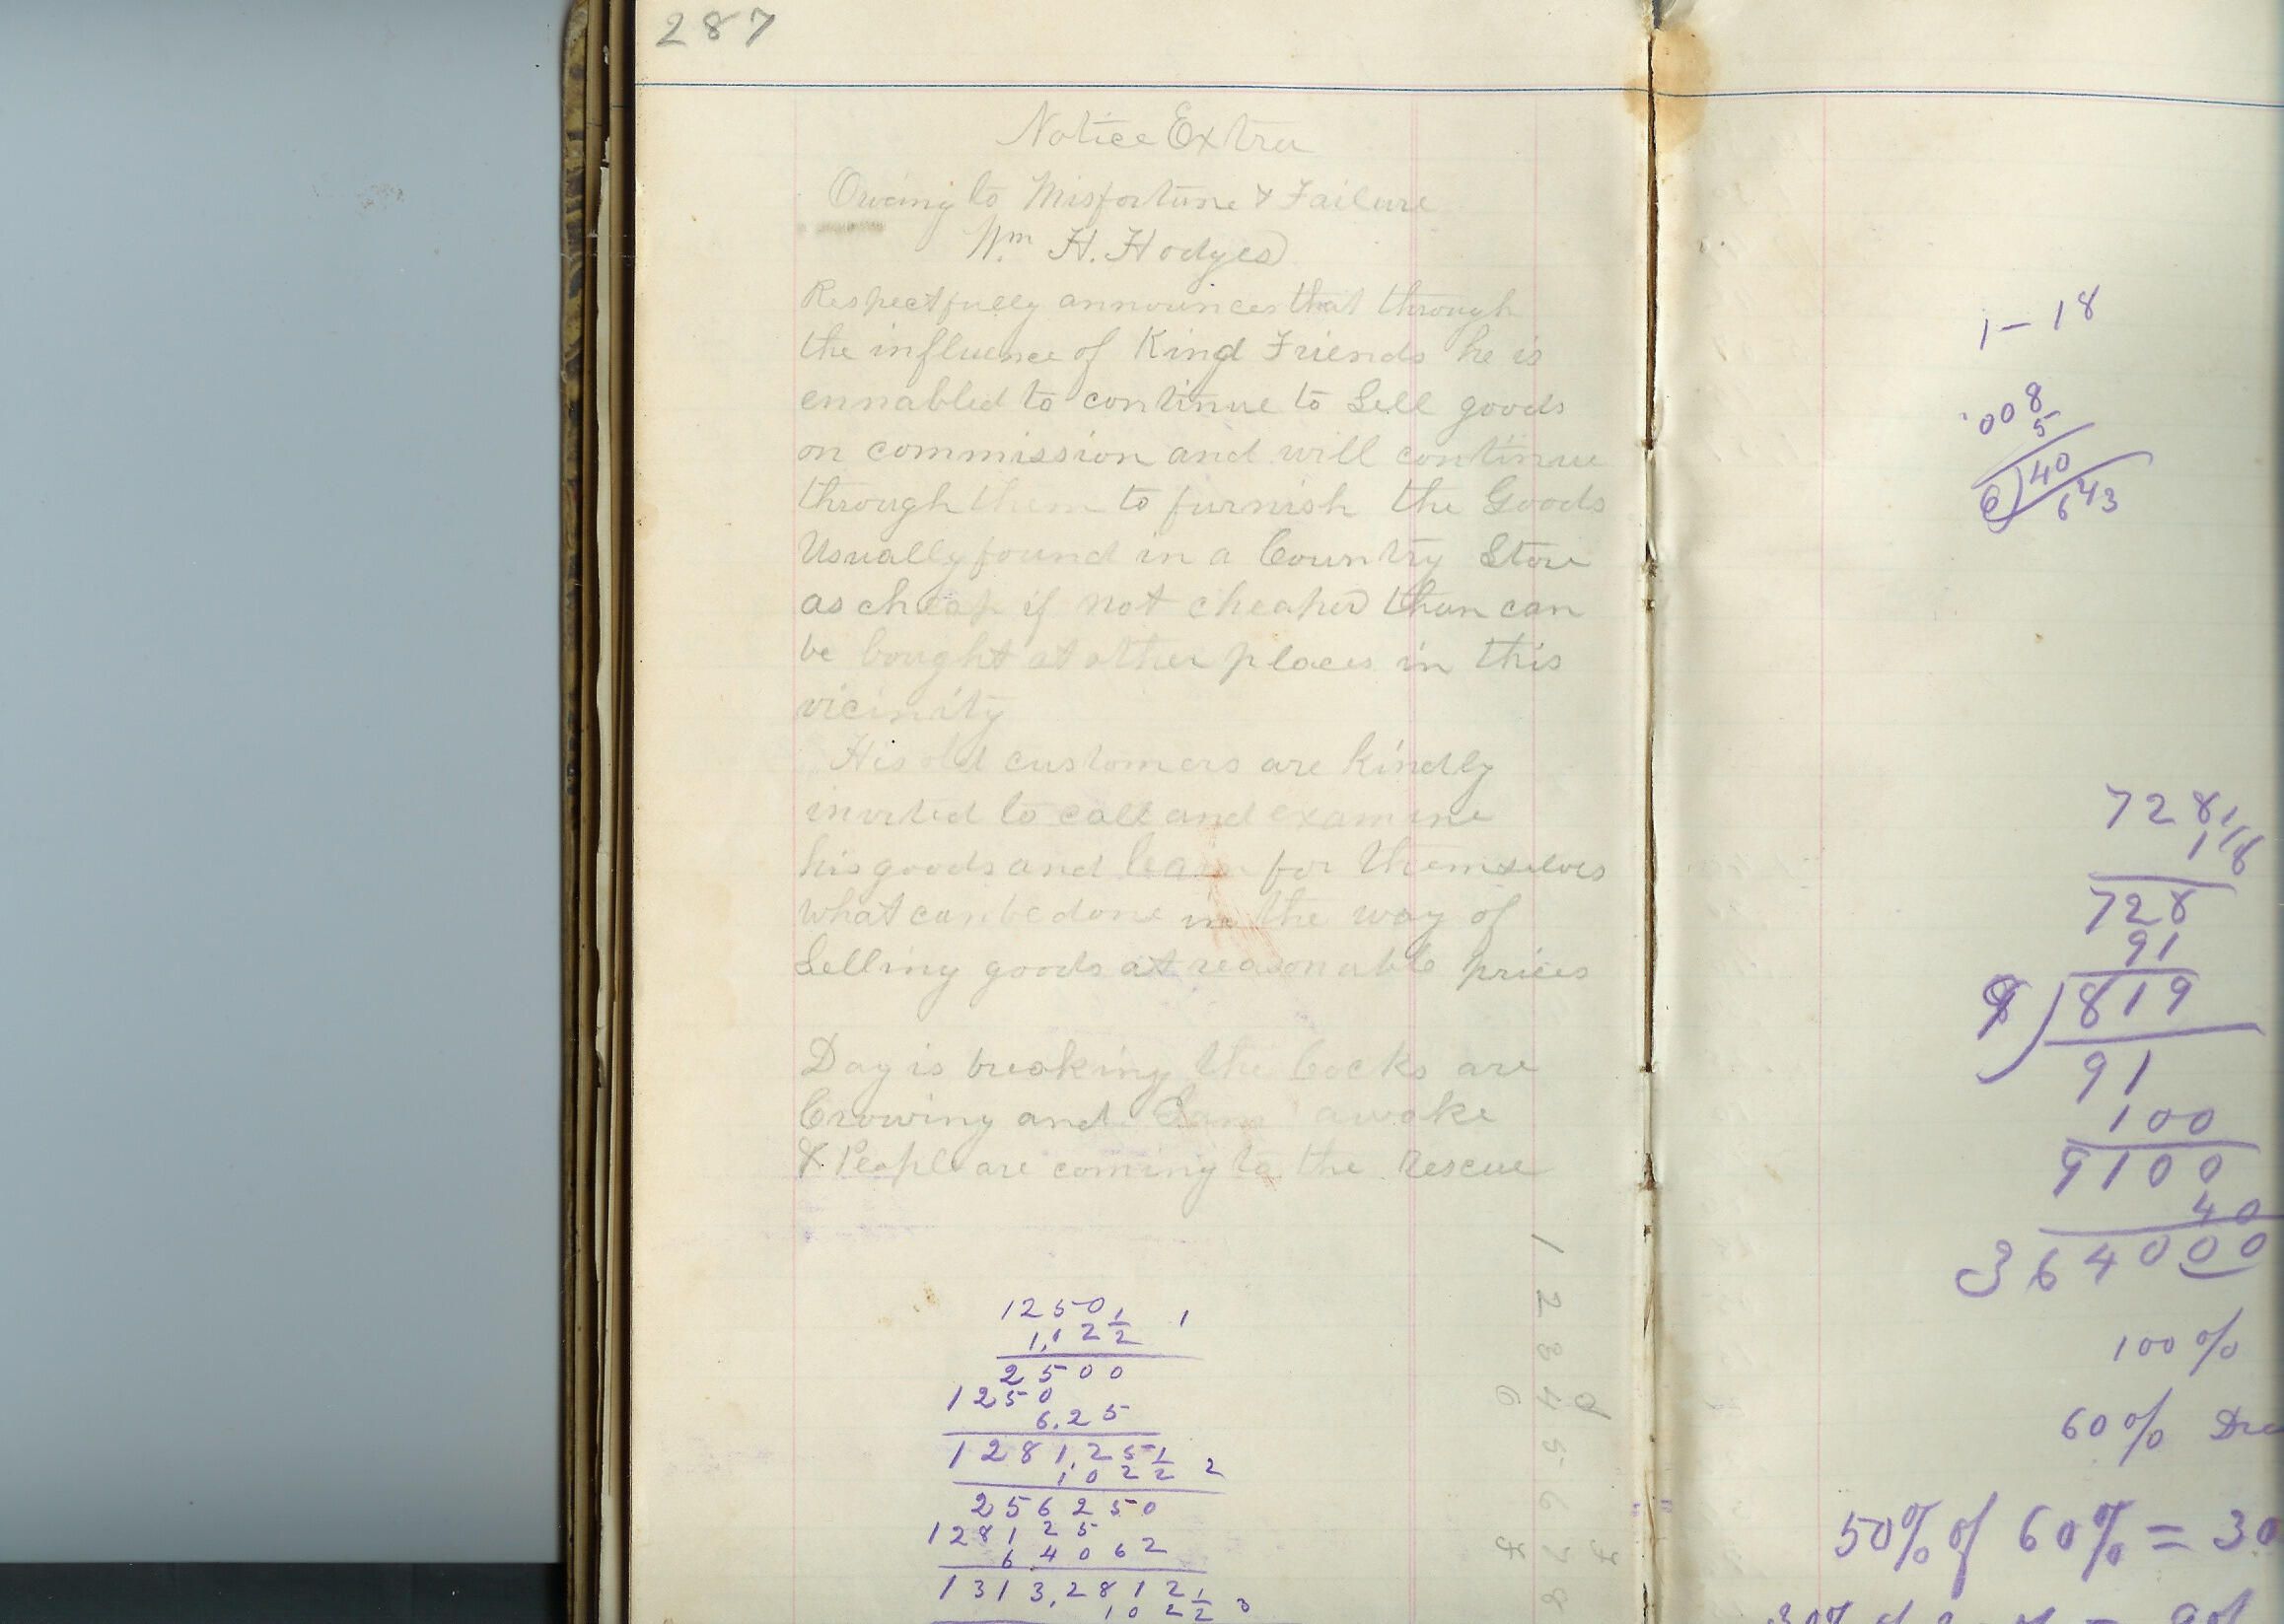 287
Notice Extra
Owing to Misfortune & Failure
Wm. H. Hodges
Respectfully announces that through
the influence of Kind Friends he is
ennabled to continue to Sell goods
on commission and will continue
through them to furnish the Goods
Usually found in a Country Store
as cheap if not cheaper than can
be bought at other places in this
vicinity
His old customers are kindly
invited to call and examine
his goods and learn for themselves
what can be done in the way of
Selling goods at reasonable prices
Day is breaking the Cocks are
Crowing and Sam awake
& People are coming to the rescue
1250 1
1,02 1/2
2500
1250
6.25
1281,25
102 1/2 2
256250
128125
64062
1313,2812
102 1/2 3
1 2 3 4 5 6 7 8
6
1-18
.008
5
40
6
643
728
1 1/8
728
91
819
9
91
100
9100
40
364000
100%
60%
50% of 60% = 30